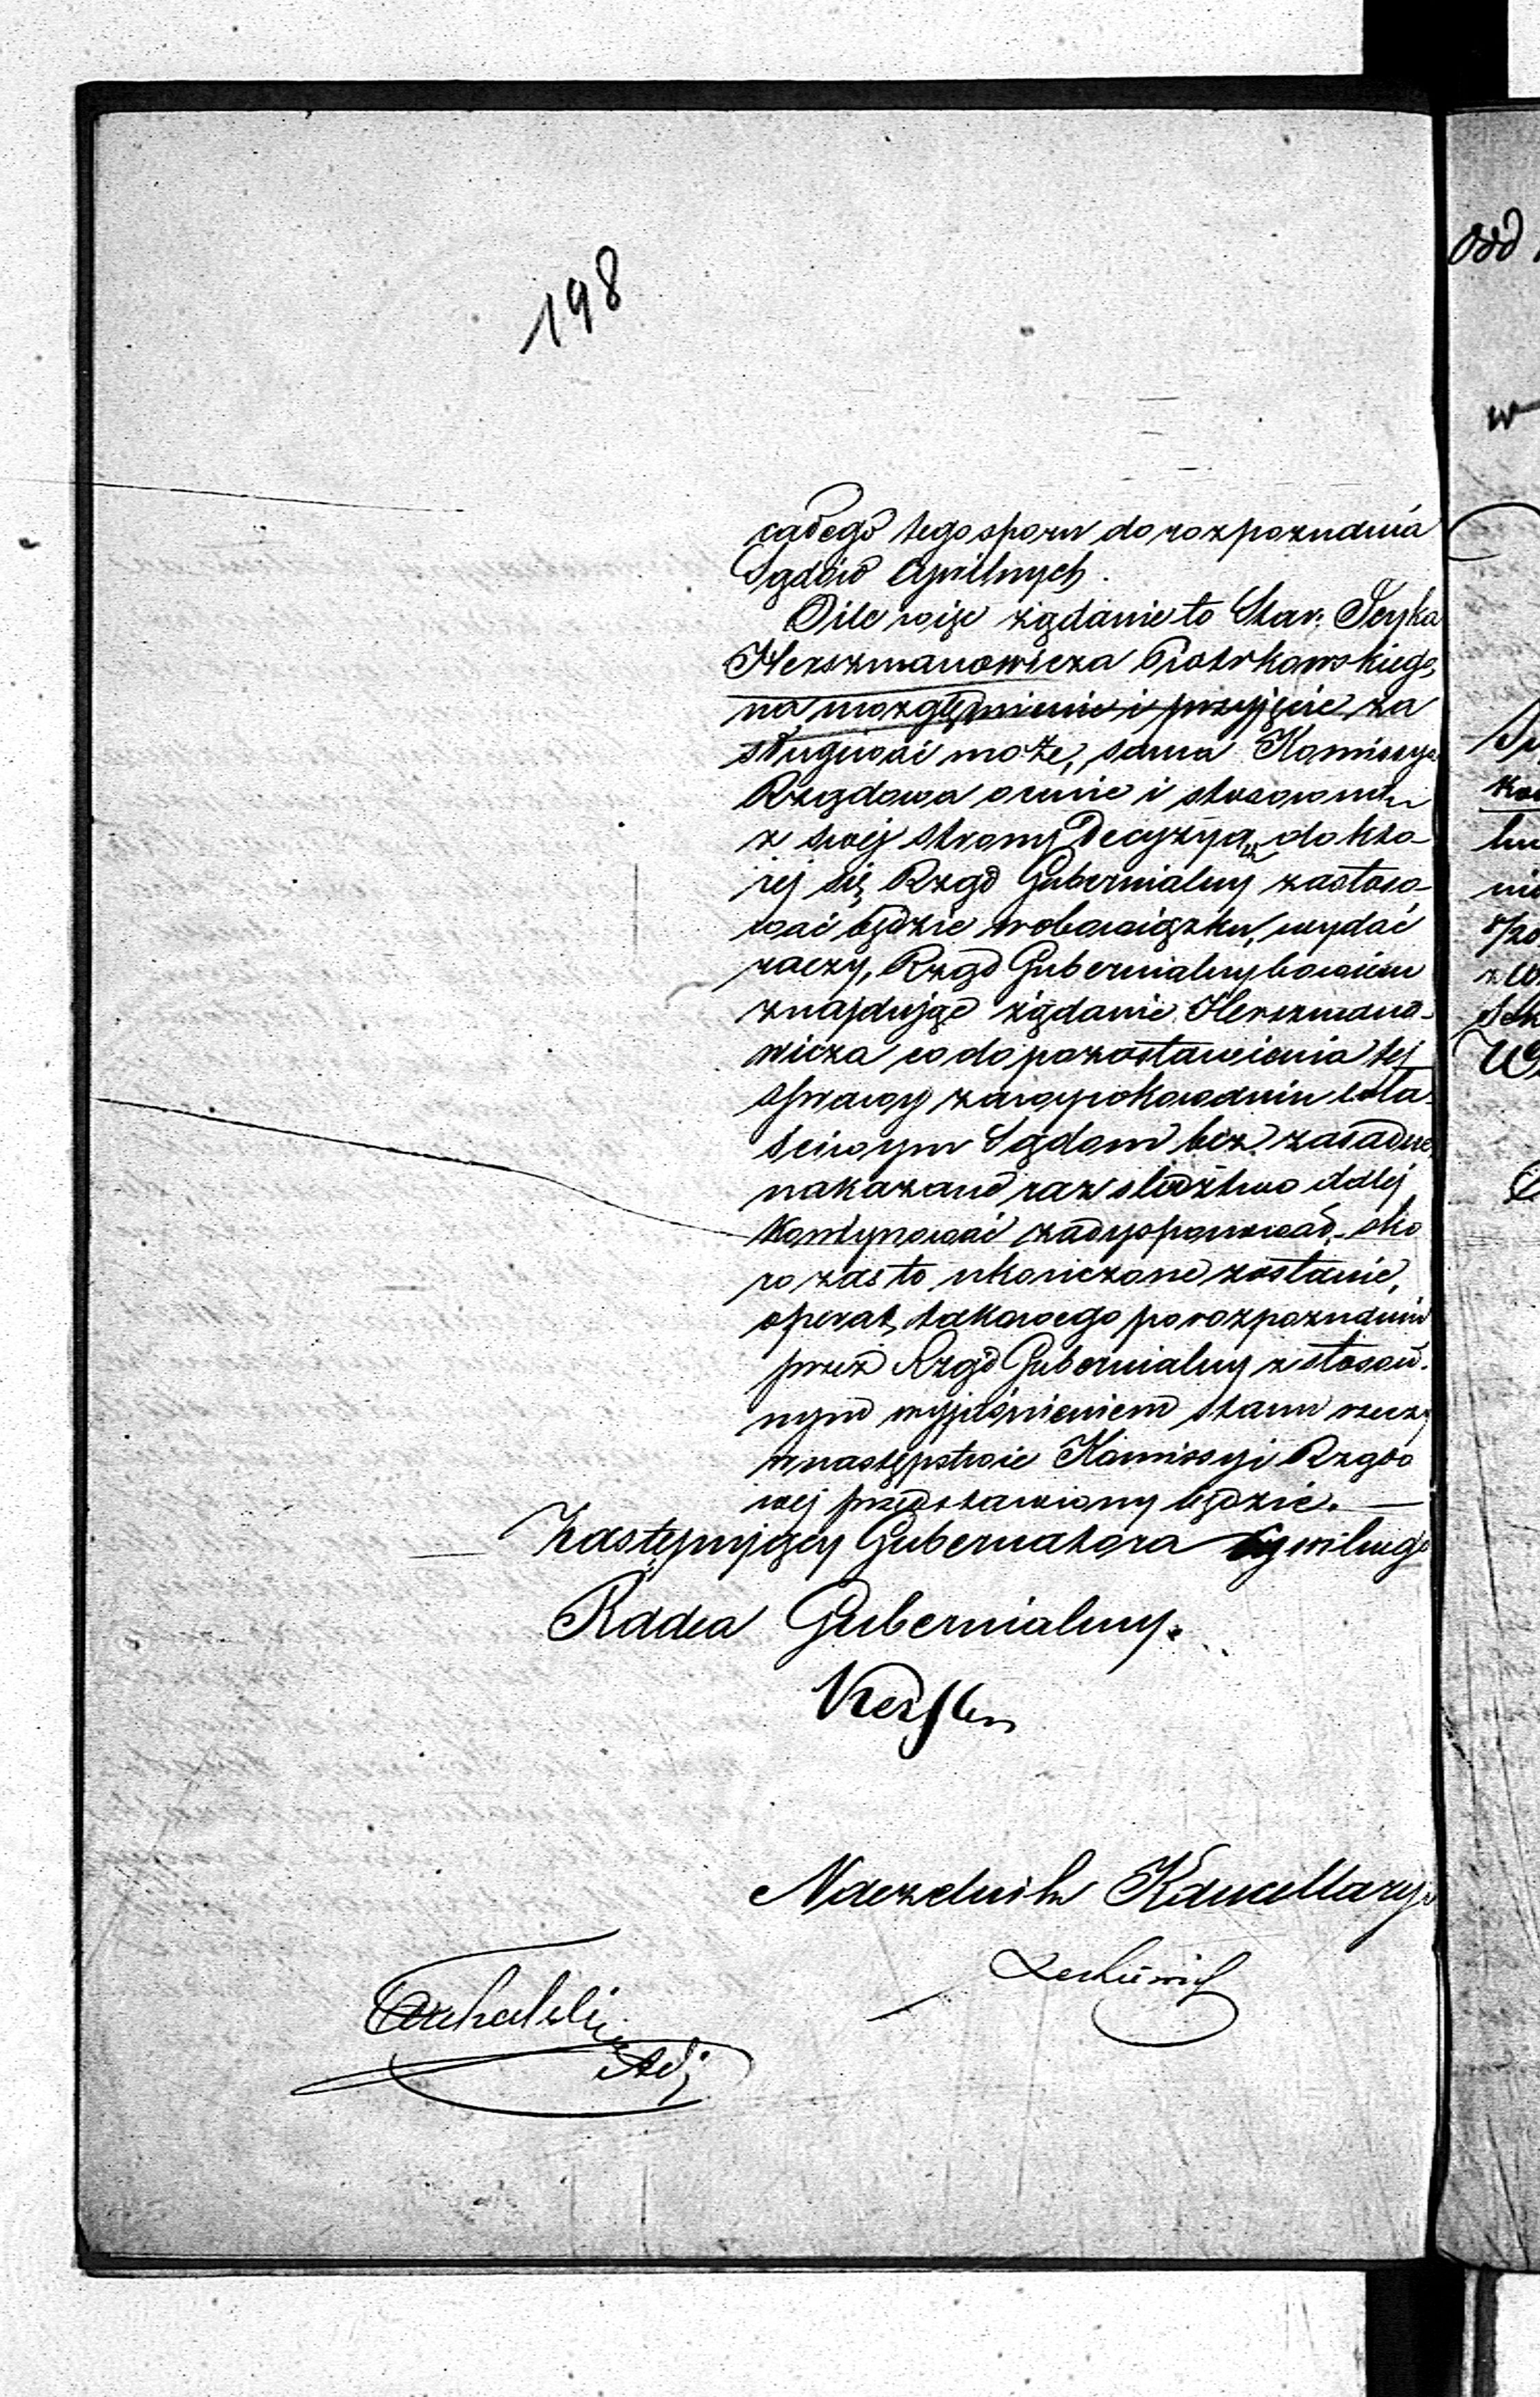 198
całego tego sporu do rozpoznania
Sądów Cywilnych.
O ile więc żądanie to Star: Jcyka
Herszmanowicza Piotrkowskiego,
na uwzględnienie i przyjęcie za
sługiwać może, sama Komissya
Rządowa ocenić i stosowną
z swej strony Decyzyą, do któ-
rej się Rząd Gubernialny zastoso-
wać będzie w obowiązku, wydać
raczy, Rząd Gubernialny bowiem
znajdując żądanie Herszmano-
wicza co do pozostawienia tej
sprawy zawyrokowaniu wła-
ściwym Sądom bez zasadne,
nakazane raz śledztwo dalej
kontynować zadysponował, sko
ro zaś to ukończone zostanie,
operat takowego po rozpoznaniu
przez Rząd Gubernialny z stosow-
nym wyjaśnieniem stanu rzeczy
w następstwie Komissyi Rządo
wej przedstawiony będzie.
Zastępujący Gubernatora Cywilnego
Radca Gubernialny.
Kersten
Naczelnik Kancellaryi
Adj
Odd
w